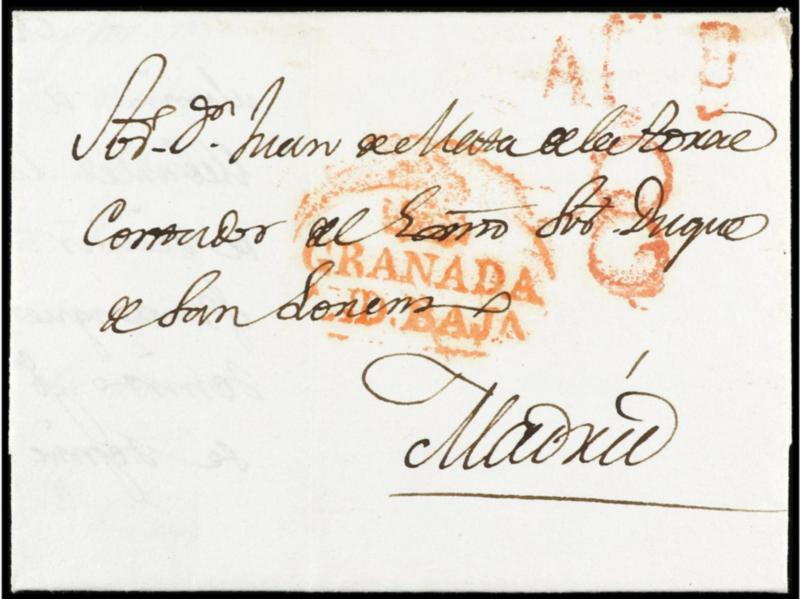 Sor. Dn. Juan de Mata de la Torre
Contador del Exmo Sor. Duque
de San Lorenzo
Madrid
GRANADA
AND. BAJA